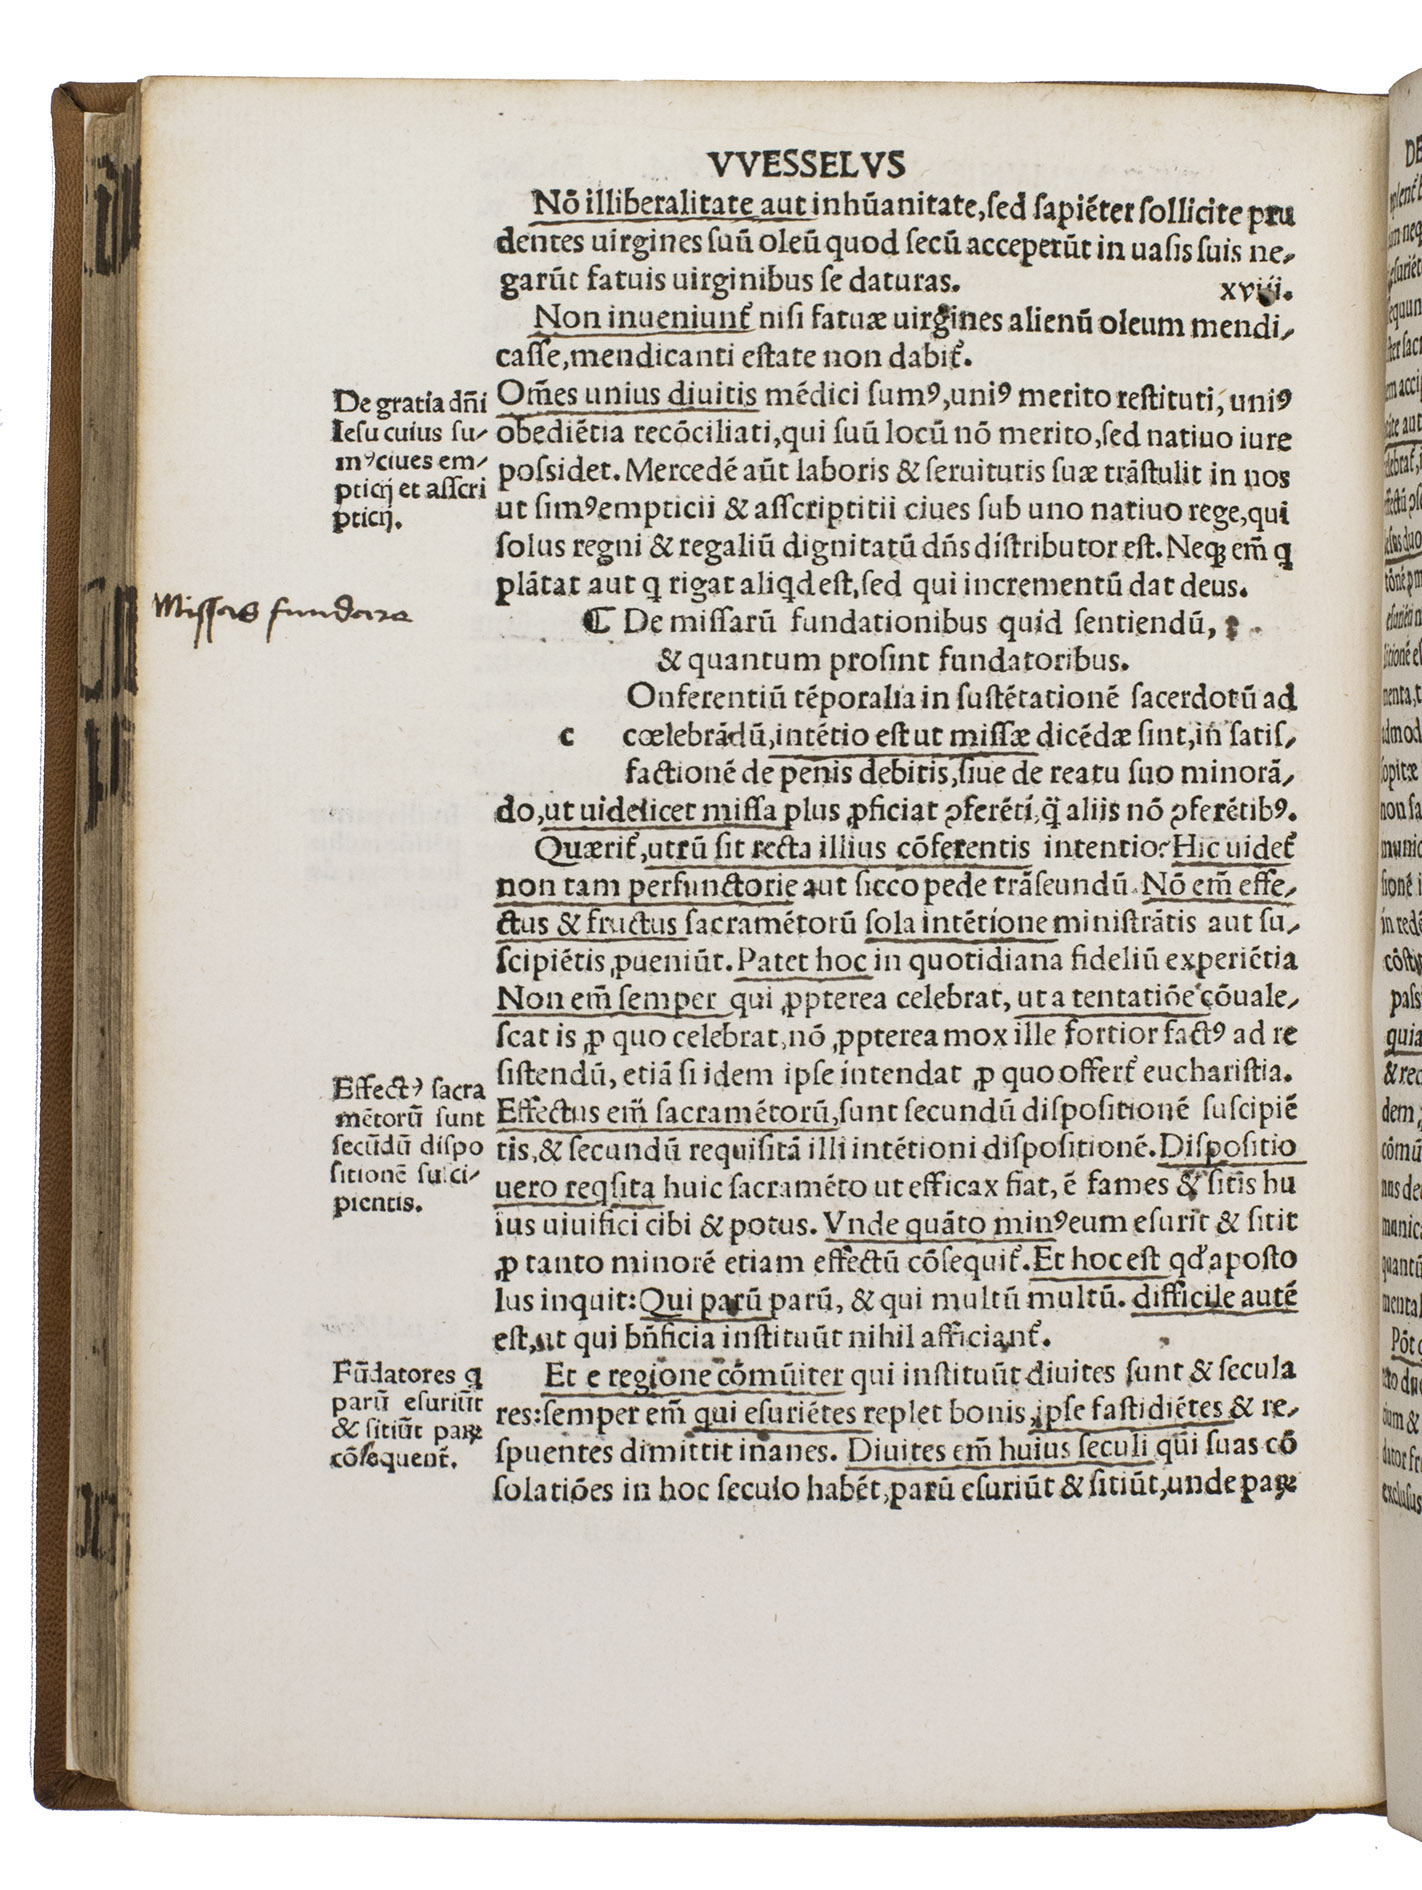 VVESSELVS
Nō illiberalitate aut inhūanitate, ſed ſapiēter ſollicite pru
dentes uirgines ſuū oleū quod ſecū acceperūt in uaſis ſuis ne⸗
garūt fatuis uirginibus ſe daturas.
xviii.
Non inueniunt᷑ niſi fatuæ uirgines alienū oleum mendi⸗
caſſe, mendicanti eſtate non dabit᷑.
De gratia dn̄i
Ieſu cuius ſu⸗
mꝰ ciues em⸗
pticij et aſſcri
pticij.
Om̄es unius diuitis mēdici ſumꝰ, uniꝰ merito reſtituti, uniꝰ
obediētia recōciliati, qui ſuū locū nō merito, ſed natiuo iure
poſsidet. Mercedē aūt laboris & ſeruitutis ſuæ trāſtulit in nos
ut ſimꝰ empticii & aſſcriptitii ciues ſub uno natiuo rege, qui
ſolus regni & regaliū dignitatū dn̄s diſtributor eſt. Neqꝫ em̄ q
plātat aut q rigat aliqd eſt, ſed qui incrementū dat deus.
Miſſas fundare
⁋ De miſſarū fundationibus quid ſentiendū,
& quantum proſint fundatoribus.
Onferentiū tēporalia in ſuſtētationē ſacerdotū ad
c cœlebrādū, intētio eſt ut miſſæ dicēdæ ſint, in ſatiſ⸗
factionē de penis debitis, ſiue de reatu ſuo minorā⸗
do, ut uidelicet miſſa plus ꝓficiat ꝯferēti, q̄ aliis nō ꝯferētibꝰ.
Quærit᷑, utrū ſit recta illius cōferentis intentio? Hic uidet᷑
non tam perfunctorie aut ſicco pede trāſeundū. Nō em̄ effe⸗
ctus & fructus ſacramētorū ſola intētione miniſtrātis aut ſu⸗
ſcipiētis ꝓueniūt. Patet hoc in quotidiana fideliū experiētia
Non em̄ ſemper qui ꝓpterea celebrat, ut a tentatiōe cōuale⸗
ſcat is ꝓ quo celebrat, nō ꝓpterea mox ille fortior factꝰ ad re
ſiſtendū, etiā ſi idem ipſe intendat ꝓ quo offert᷑ euchariſtia.
Effectꝰ ſacra
mētorū ſunt
ſecūdū diſpo
ſitionē ſuſci⸗
pientis.
Effectus em̄ ſacramētorū, ſunt ſecundū diſpoſitionē ſuſcipiē
tis, & ſecundū requiſitā illi intētioni diſpoſitionē. Diſpoſitio
uero reqſita huic ſacramēto ut efficax fiat, ē fames & ſitis hu
ius uiuifici cibi & potus. Vnde quāto minꝰ eum eſurit & ſitit
ꝓ tanto minorē etiam effectū cōſequit᷑. Et hoc eſt qd̓ apoſto
lus inquit: Qui parū parū, & qui multū multū. difficile autē
eſt, ut qui bn̄ficia inſtituūt nihil afficiant᷑.
Fūdatores q
parū eſuriūt
& ſitiūt parꝝ
cōſequent᷑.
Et e regione cōmūiter qui inſtituūt diuites ſunt & ſecula
res: ſemper em̄ qui eſuriētes replet bonis, ipſe faſtidiētes & re⸗
ſpuentes dimittit inanes. Diuites em̄ huius ſeculi qui ſuas cō
ſolatiōes in hoc ſeculo habēt, parū eſuriūt & ſitiūt, unde parꝝ